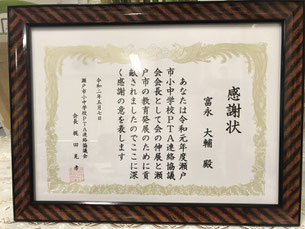 感謝状
富永 大輔 殿
あなたは令和元年度瀬戸
市小中学校PTA連絡協議
会会長として会の伸展と瀬
戸市の教育発展のために貢
献されましたのでここに深
く感謝の意を表します
令和二年五月七日
瀬戸市小中学校PTA連絡協議会
会長 梶田晃孝